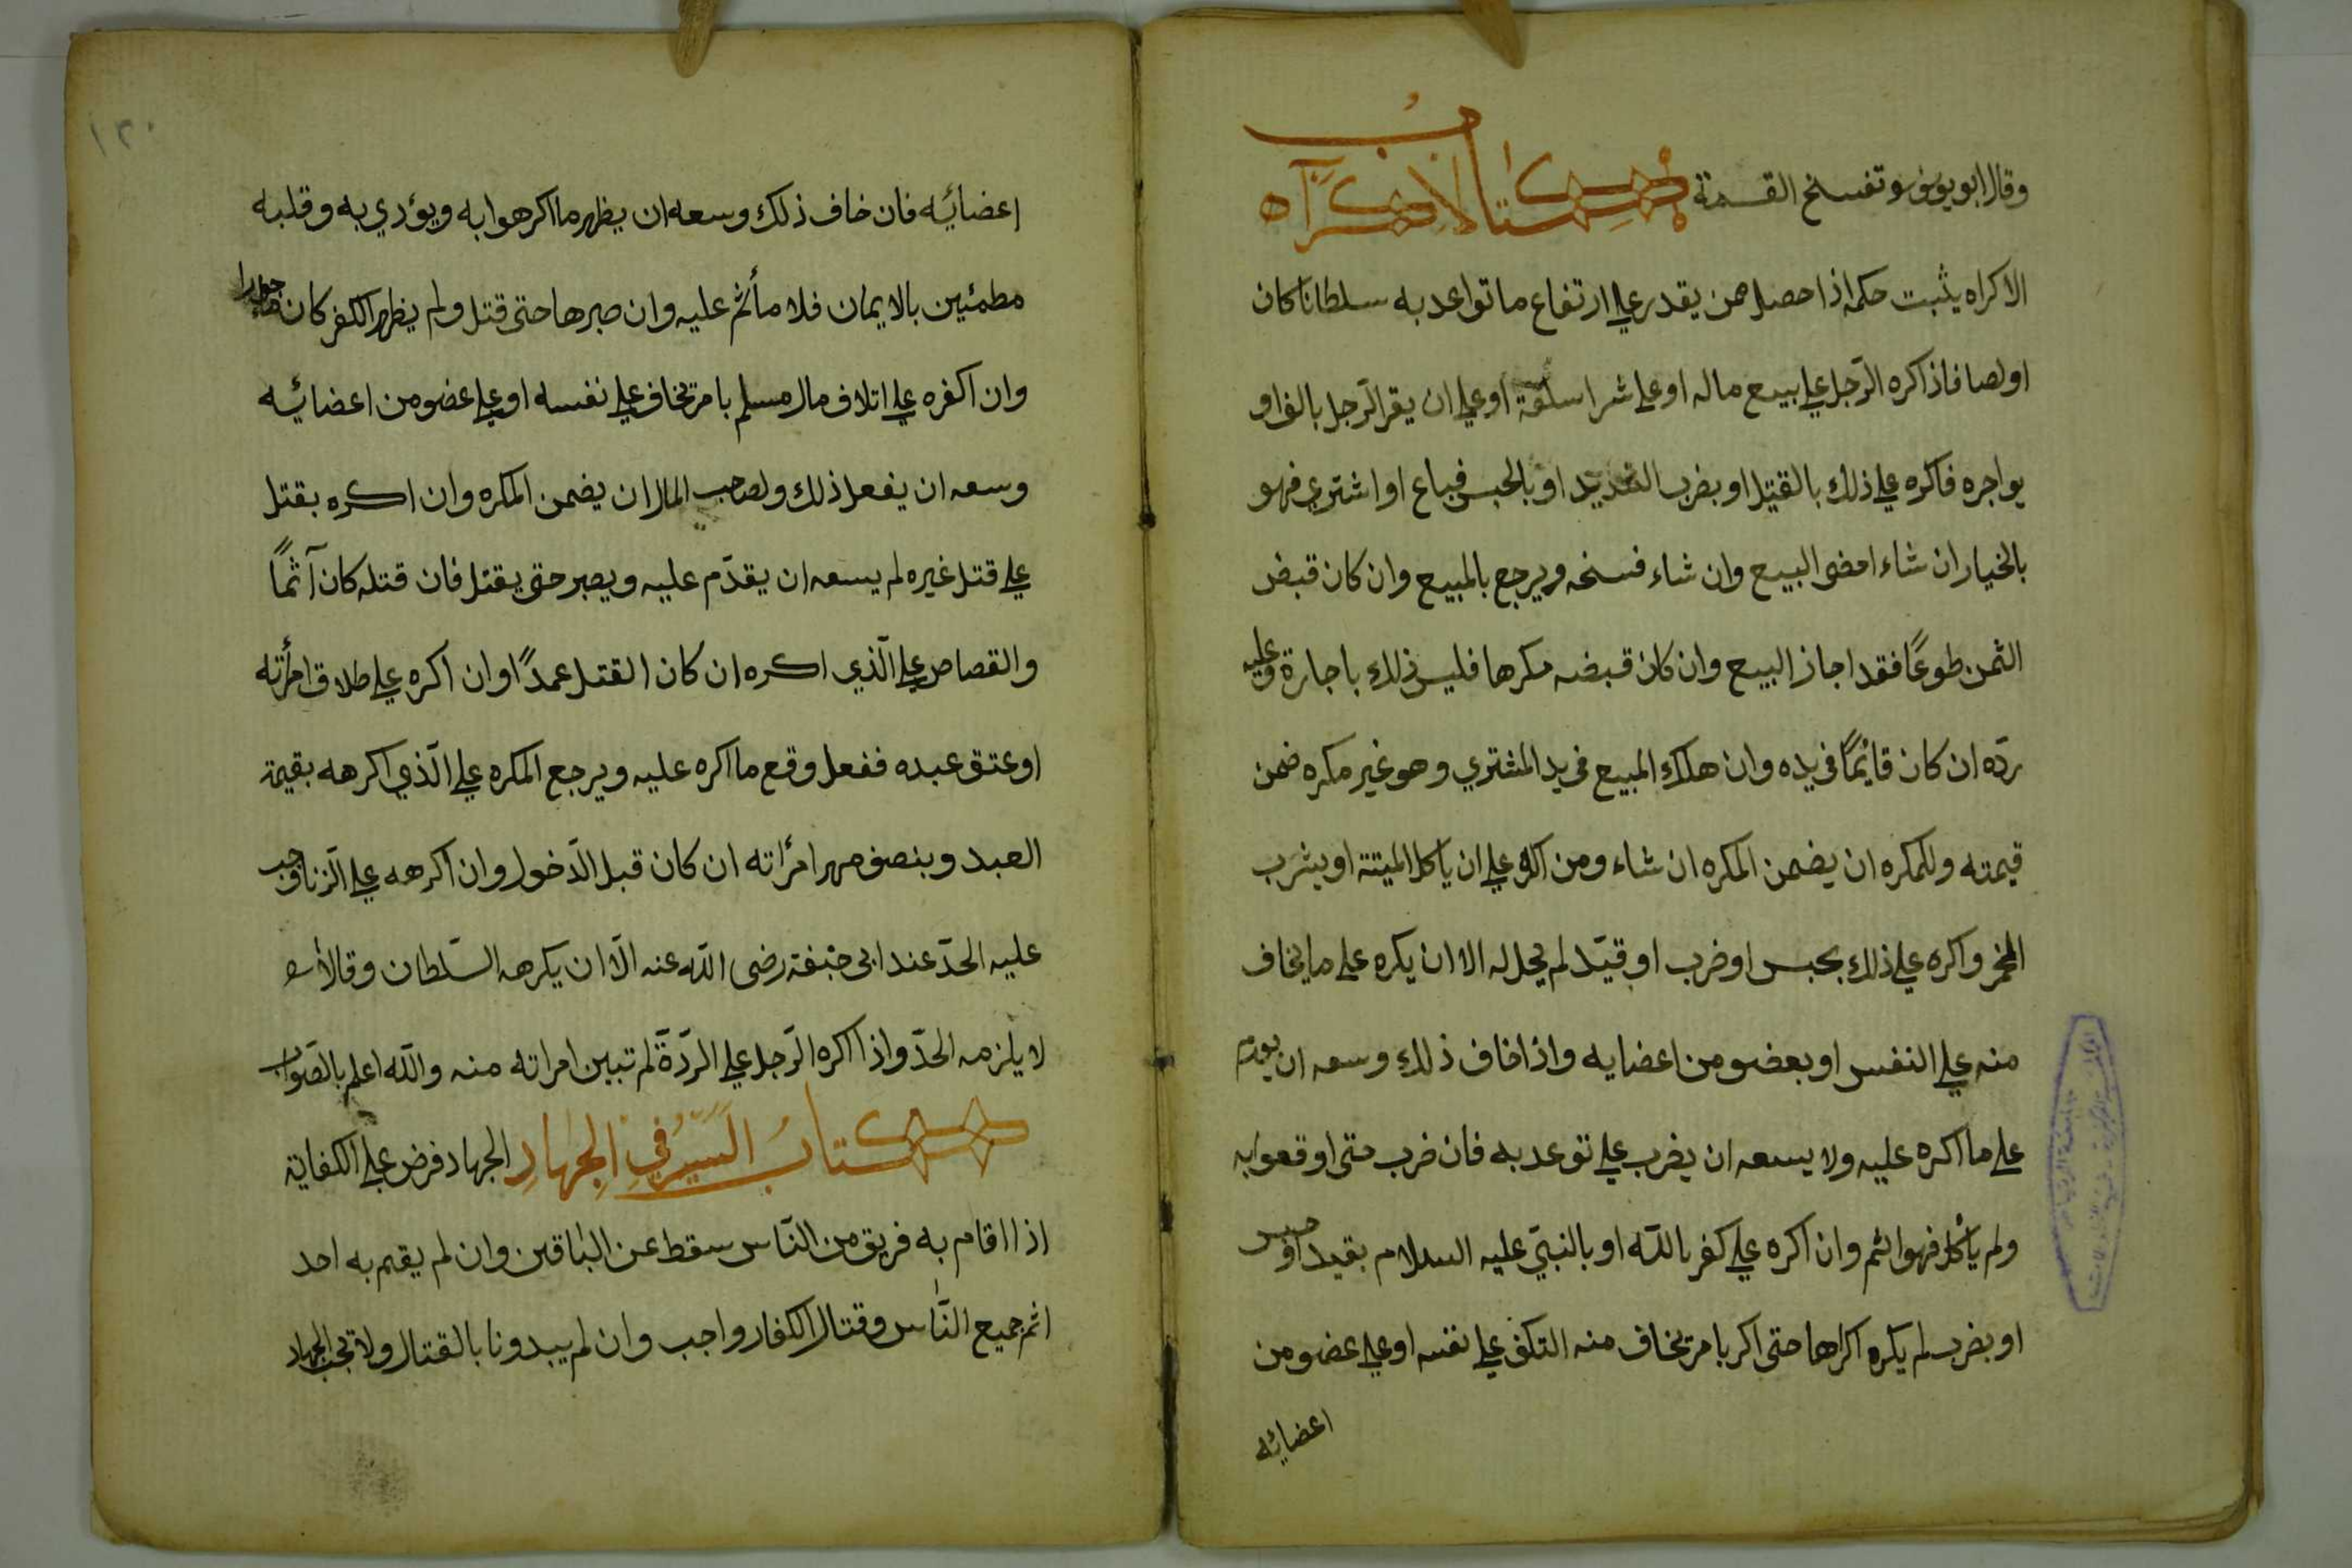 وقال ابو يوسف وتفسخ القسمة كتاب الاكراه
الاكراه يثبت حكمه اذا حصل ممن يقدر على ارتفاع ما تواعد به سلطانا كان
او لصا فاذا اكره الرّجل على بيع ماله او على شرا سلعة او على ان يقر الرّجل بالف او
يواجره فاكره على ذلك بالقتل او بضرب الشديد او بالحبس فباع او اشترى فهو
بالخيار ان شاء امضى البيع وان شاء فسخه ويرجع بالمبيع وان كان قبض
الثمن طوعًا فقد اجاز البيع وان كان قبضه مكرها فليس ذلك باجارة وعليه
ردّه ان كان قائمًا في يده وان هلك المبيع في يد المشتري وهو غير مكره ضمن
قيمته وللمكره ان يضمن المكره ان شاء ومن اكره على ان ياكل الميتة او يشرب
الخمر واكره على ذلك بحبس او ضرب او قيّد لم يحل له الا ان يكره على ما يخاف
منه على النفس او بعضو من اعضايه واذا خاف ذلك وسعه ان يقدم
على ما اكره عليه ولا يسعه ان يضرب على توعد به فان ضرب متى اوقعوا به
ولم يأكل فهو اثم وان اكره على كفر باللّه او بالنبيّ عليه السلام بقيد او حبس
او بضرب لم يكره اكراها حتى اكر بامر يخاف منه التكف على نفسه او على عضو من
اعضائه
١٣٠
اعضائه فان خاف ذلك وسعه ان يظهر ما اكرهوا به ويؤدي به وقلبه
مطمئين بالايمان فلا مأثم عليه وان صبر ها حتى قتل ولم يظهر الكفر كان ماجورا
وان اكفره على اتلاف مال مسلم بامر يخاف على نفسه او على عضو من اعضائه
وسعه ان يفعل ذلك ولصاحب المال ان يضمن المكره وان اكره بقتل
على قتل غيره لم يسعه ان يقدّم عليه ويصبر حتى يقتل فان قتله كان آثمًا
والقصاص على الّذي اكره ان كان القتل عمدًا وان اكره على طلاق امرأته
او عتق عبده ففعل وقع ما اكره عليه ويرجع المكره على الّذي اكرهه بقيمة
العبد وبنصف مهر امرأته ان كان قبل الدّخول وان اكرهه على الزّنا وجب
عليه الحدّ عند ابى حنيفة رضى اللّه عنه الّا ان يكرهه السّلطان وقالا
لا يلزمه الحدّ واذا اكره الرّجل على الردّة لم تبين امراته منه واللّه اعلم بالصّواب
كتاب السّير في الجهاد الجهاد فرض على الكفاية
اذا اقام به فريق من النّاس سقط عن الباقين وان لم يقيم به احد
اثم جميع النّاس وقتال الكفار واجب وان لم يبدونا بالقتال ولا تجب الجهاد